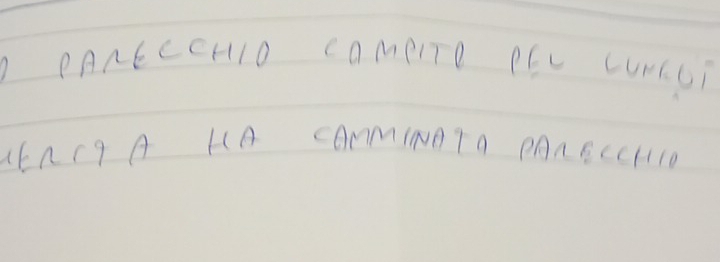 PARECCHIO COMPITO PER LUNEDI
HA CAMMINATA PARECCHIO